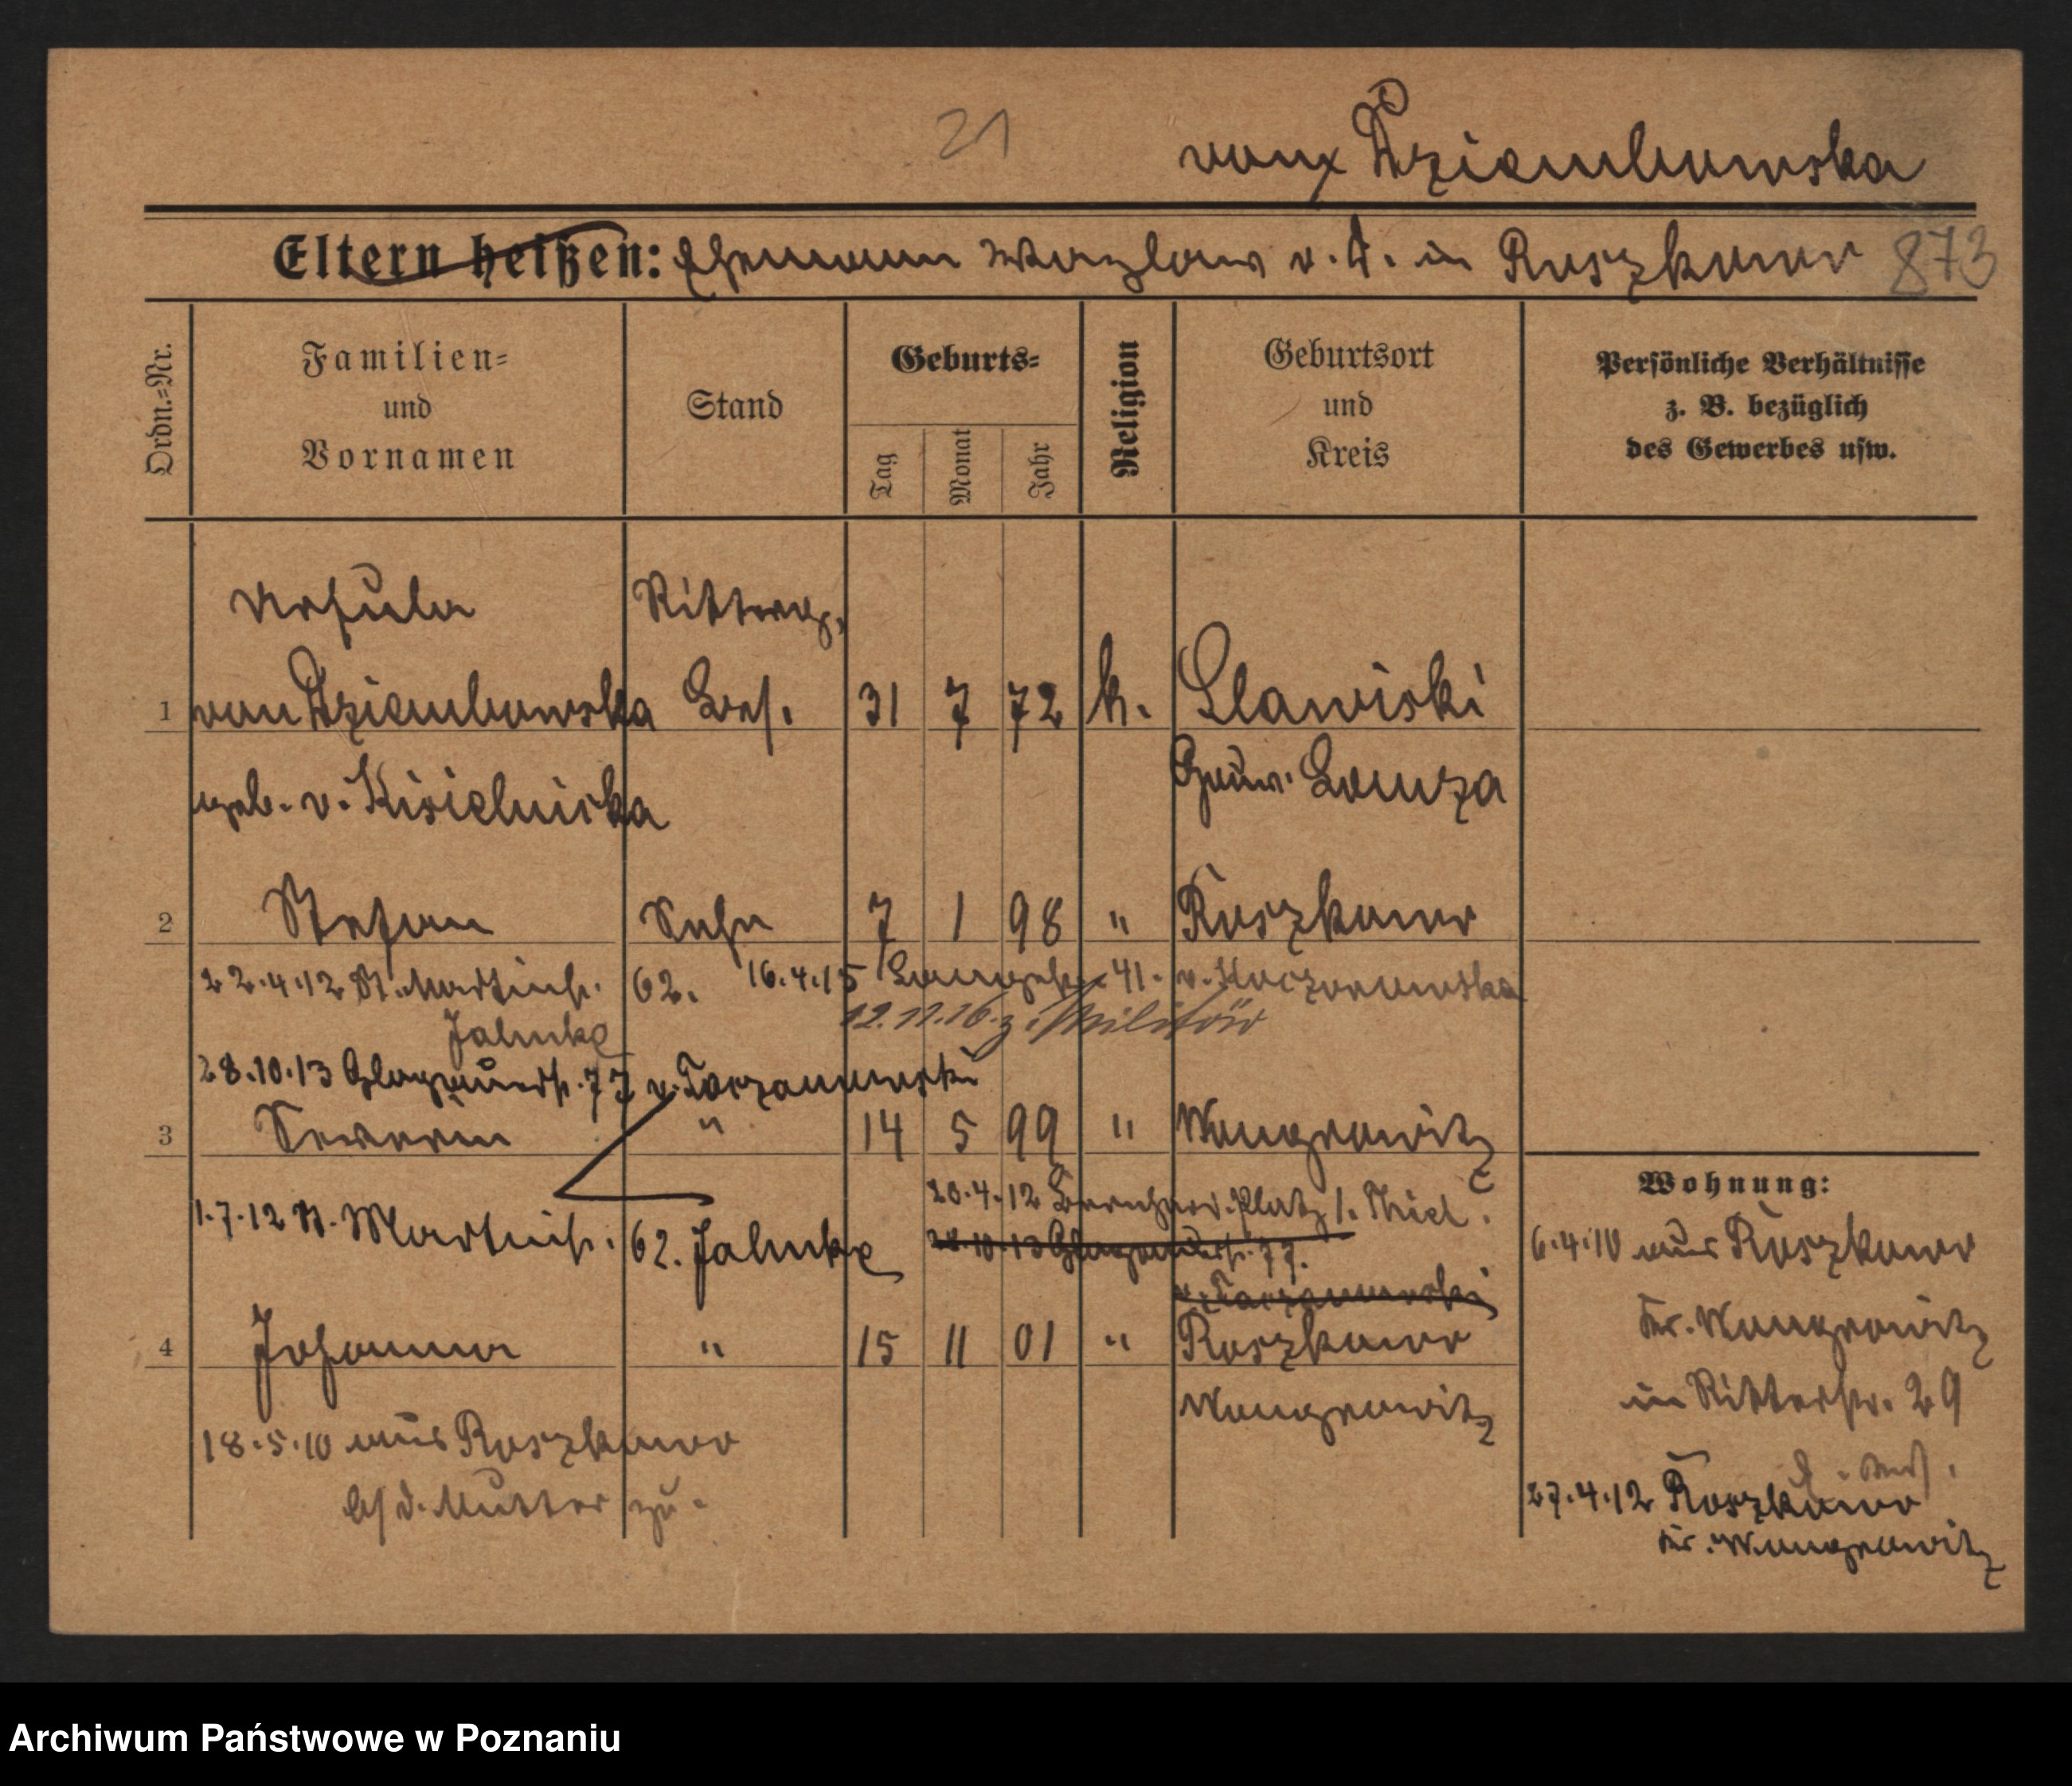 21
von Dziembowska
Eltern heißen: Ehemann Wazlaw v. D. in Roszkowo 873
Ordn.=Nr.
Familien=
und
Vornamen
Stand
Geburts=
Tag
Monat
Jahr
Religion
Geburtsort
und
Kreis
Persönliche Verhältnisse
z. B. bezüglich
des Gewerbes usw.
Ursula Ritterg.
1 von Dziembowska Bes. 31 7 72 k. Slawiski
geb. v. Kisielnicka Gouv. Lomza
2 Stefan Sohn 7 1 98 " Roszkowo
22.4.12 St. Martinstr. 62. 16.4.15 41. v.
Jahnke 12.11.16 z. Militär
28.10.13 Glogauerstr. 77 v. Taczanowski
3 Severin " 14 5 99 " Wongrowitz
1.7.12 St. Martinstr. 62. Jahnke 20.4.12 Bernhard.Platz 1. Thiel.
28.10.13 Glogauerstr. 77.
v. Taczanowski
4 Johanna " 15 11 01 " Roszkowo
Wongrowitz
18.5.10 aus Roszkowo
b/d. Mutter zu.
Wohnung:
6.4.10 aus Roszkowo
Kr. Wongrowitz
in Ritterstr. 29
27.4.12 Roszkowo
Kr. Wongrowitz
Archiwum Państwowe w Poznaniu